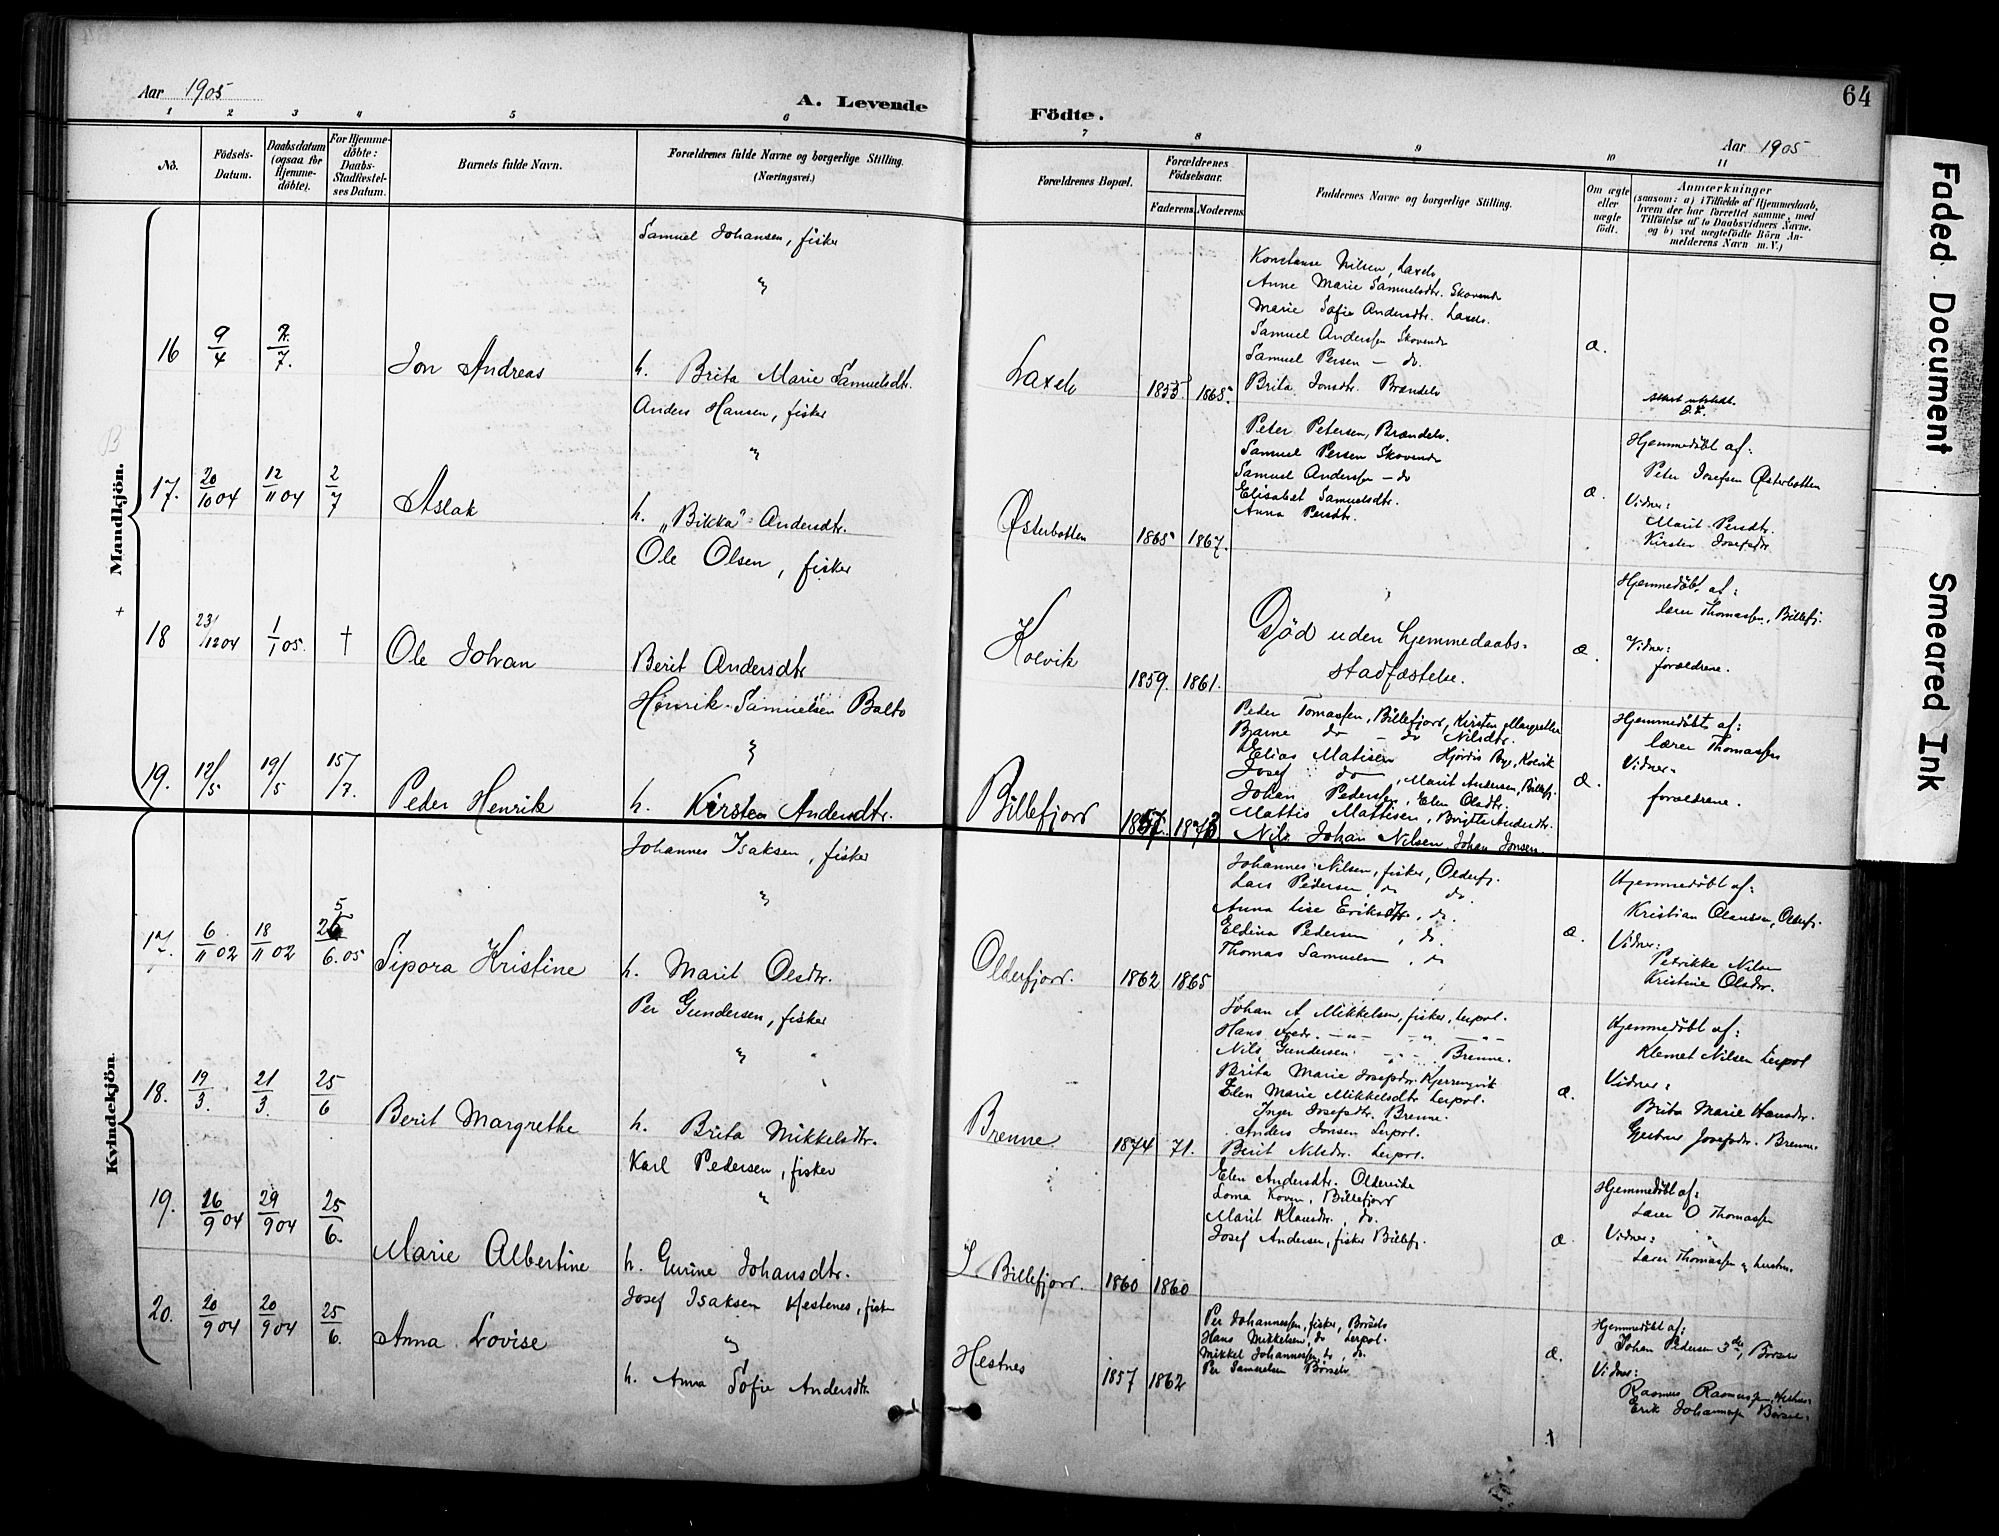 Aar 1905
A. Levende
Födte.
Aar 1905
64
1 2 3 4 5 6 7 8 9 10 11
No.
Födsels-Datum.
Daabsdatum (ogsaa for Hjemme-døbte).
For Hjemme-døbte: Daabs-Stadfæstel-ses Datum.
Barnets fulde Navn.
Forældrenes fulde Navne og borgerlige Stilling.
(Næringsvei.)
Forældrenes Bopæl.
Forældrenes Födselsaar.
Faderens. Moderens.
Faddernes Navne og borgerlige Stilling.
Om ægte eller uægte födt.
Anmærkninger
(saasom: a) i Tilfælde af Hjemmedaab,
hvem der har forrettet samme, med
Tilföielse af to Daabsvidners Navne.
og b) ved uægtefödte Börn An-
melderens Navn m. V.)
Mandkjön.
16 9/4 2/7.
Jon Andreas
Samuel Johansen, fisker
"
h. Brita Marie Samuelsdtr.
Laxelv 1855 1865.
Konstanse Nilsen, Laxelv
Anne Marie Samuelsdtr. Skovend
Marie Sofie Andersdtr. Laxelv.
Samuel Anderssen Skovend
Samuel Persen - do.
Brita Jonsdtr. Brændelv
æ.
Attest utstedt.
17. 20/10 04 12/11 04 2/7
Aslak
Anders Hansen, fisker
"
h. "Bikka" Andersdtr.
Østerbotten 1865 1867.
Peter Petersen, Brændelv.
Samuel Persen Skovend
Samuel Anderssen - do
Elisabet Samuelsdtr.
Anna Persdtr.
æ.
Hjemmedøbt af:
Peter Josefsen Østerbotten
Vidner:
Marit Persdtr.
Kirsten Josefsdtr
18 23/12 04 1/1 05. †
Ole Johan
Ole Olsen, fisker
Berit Andersdtr
Kolvik 1859. 1861.
Død uden hjemmedaabs-
stadfæstelse.
æ.
Hjemmedøbt af:
lærer Thomassen, Billefj.
Vidner:
forældrene.
19. 12/5 19/5 15/7.
Peder Henrik
Henrik Samuelsen Balto
"
h. Kirsten Andersdtr.
Billefjord 1857. 1873
Peder Tomassen, Billefjord, Kirsten Margrethe
Bjarne do - do Nilsdtr.
Elias Matisen Hjördis Bye, Kolvik
Josef do, Marit Andersen, Billefj.
Johan Pedersen, Elen Olsdtr.
Mattis Mattisen, Birgitte Andersdtr.
Nils Johan Nilsen, Johan Jonsen
æ.
Hjemmedøbt af:
lærer Thomassen
Vidner:
forældrene.
Kvindekjön.
17. 6/11 02 18/11 02 25/6.05
Sipora Kristine
Johannes Isaksen, fisker
"
h. Marit Olsdtr.
Olderfjord. 1862 1865
Johannes Nilsen, fisker, Olderfj.
Lars Pedersen, do do.
Anna Lise Eriksdtr., do.
Eldina Pedersen, do.
Thomas Samuelsen, do
æ.
Hjemmedøbt af:
Kristian Olaussen, Olderfj.
Vidner:
Petrikke Nilsen
Kristine Olsdtr.
18. 19/3. 21/3. 25/6
Berit Margrethe
Per Gundersen, fisker
"
h. Brita Mikkelsdtr.
Brenne 1874 71.
Johan A Mikkelsen, fisker, Lerpol.
Hans
Nils Gundersen. Brenne.
Brita Marie Josefsdtr. Kjerringvik
Elen Marie Mikkelsdtr Lerpol.
Inger Josefsdtr. Brenne.
Anders Jonsen Lerpol.
Berit Nilsdtr. Lerpol.
æ.
Hjemmedøbt af:
Klemet Nilsen Lerpol
Vidner:
Brita Marie Hansdtr.
Josefsdtr. Brenne
19. 26/9 04 29/9 04 25/6.
Marie Albertine
Karl Pedersen, fisker
"
h. Gurine Johansdtr.
I. Billefjord. 1860 1860
Elen Andersdtr. Oldervike
Lorna Koven, Billefjord
Marit Klausdtr., do.
Josef Andersen, fisker Billefj.
æ.
Hjemmedøbt af:
Lærer O Thomassen
Vidner:
Lærer Thomassen
20. 20/9 04 20/9 04 25/6.
Anna Lovise
Josef Isaksen Hestenes, fisker
"
h. Anna Sofie Andersdtr
Hestnes 1857 1862
Per Johannessen, fisker, Börselv
Hans Mikkelsen, do Lerpol.
Mikkel Johannessen do do.
Per Samuelsen Börselv
æ.
Hjemmedøbt af:
Johan Pedersen 3die, Börselv
Vidner:
Rasmus Rasmussen, Hestnes
Erik Johannesen Börselv.
Faded Document
Smeared Ink